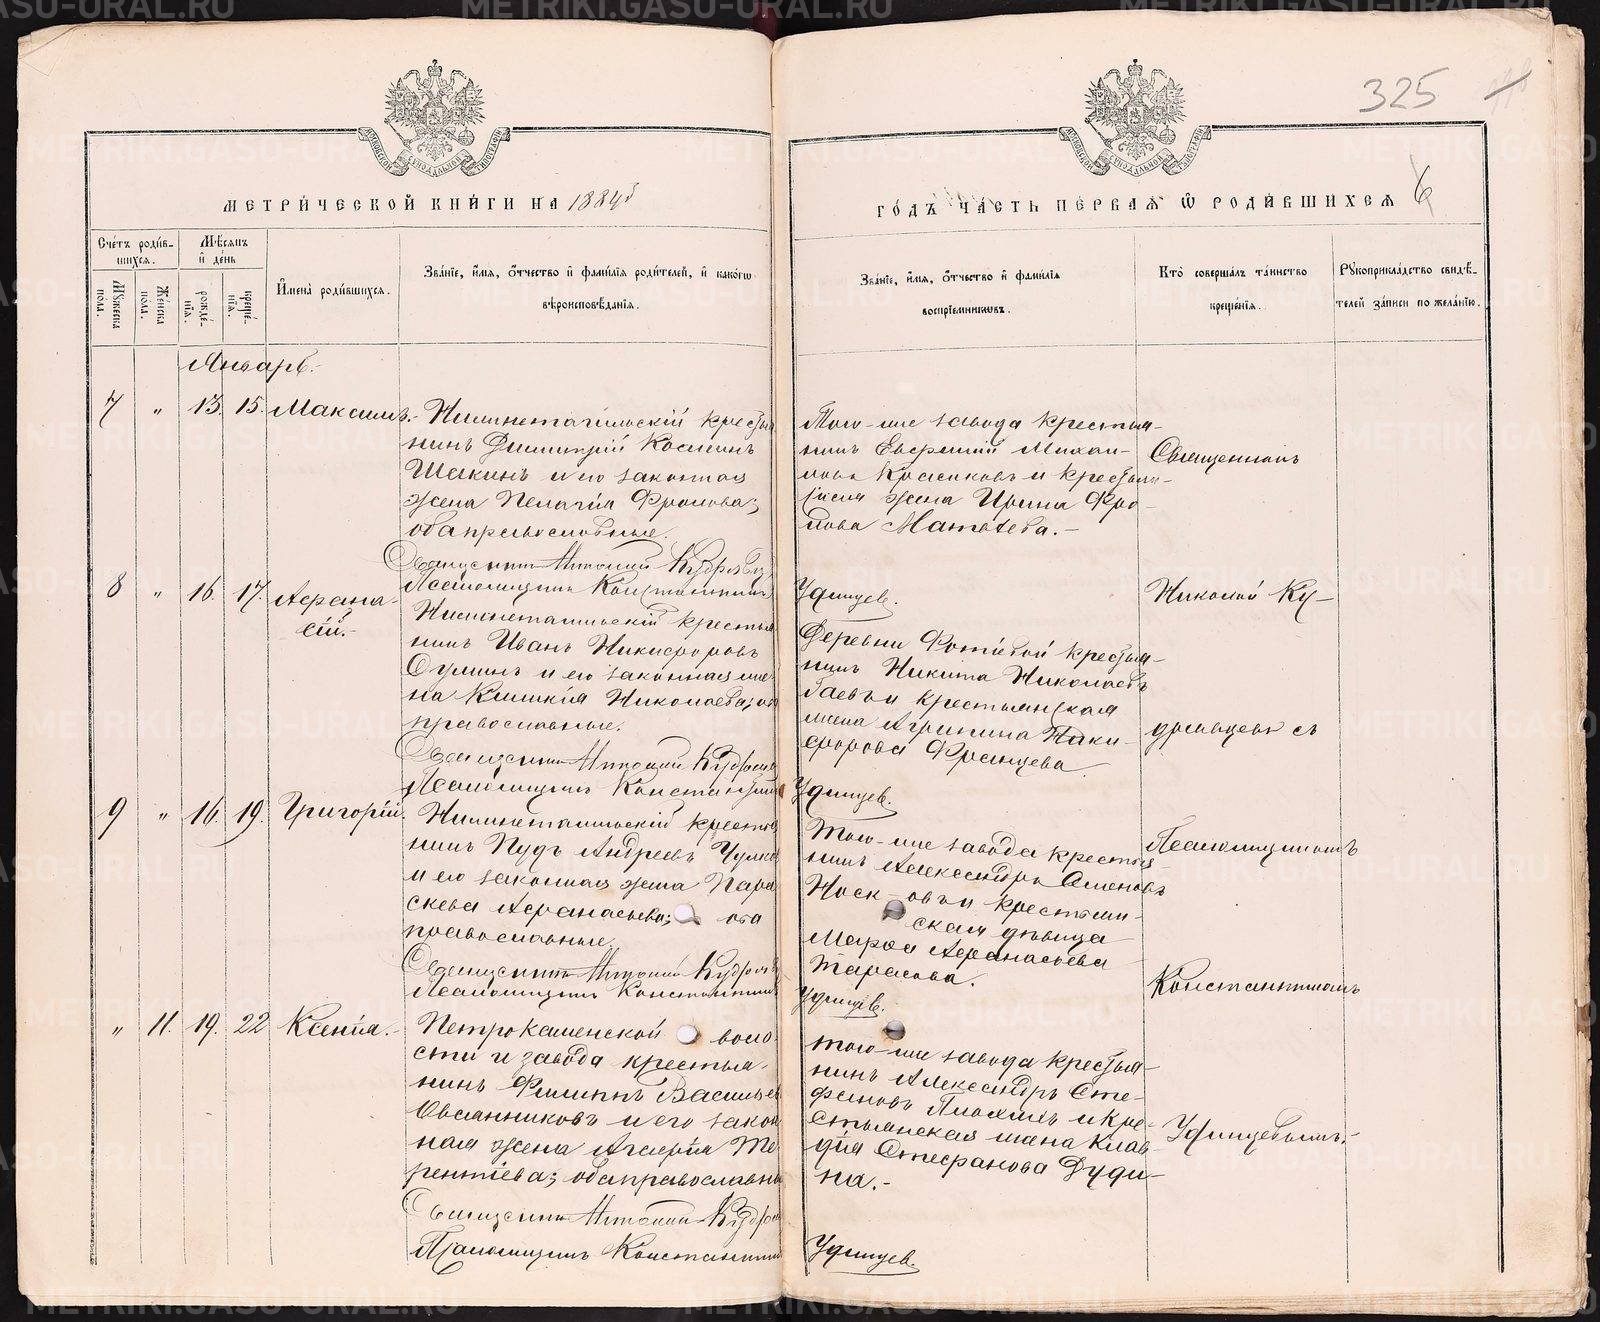 325
МЕТРИ́ЧЕСКОЙ КНИ́ГИ НА 1884й
ГО́ДЪ ЧА́СТЬ ПЕ́РВАЯ Ѡ РОДИ́ВШИХСЯ 6
Сче́тъ роди́в-
шихся.
Мѣ́сяцъ
и҆ де́нь
Мꙋ́жеска
по́ла.
Же́нска
по́ла.
рожде́-
нїѧ.
креще́-
нїѧ.
И҆мена̀ роди́вшихся.
Зва́нїе, и҆́мя, ѻ҆́тчество и҆ фами́лїя роди́телей, и҆ како́гѡ
вѣроисповѣ́данїя.
Зва́нїе, и҆́мя, ѻ҆́тчество и҆ фами́лїя
воспрїе́мникѡвъ.
Кто̀ соверша́лъ та́инство
креще́нїя.
Рꙋкоприкла́дство свидѣ́-
телей за́писи по жела́нїю.
Январь.
7 „ 13. 15. Максимъ.
Нижнетагильскій крестья
нинъ Димитрій Косминъ
Шакинъ и его законная
жена Пелагія Фролова;
оба православные.
Священникъ Кудрявц
Псаломщикъ Константинъ
Того-же завода крестья-
нинъ Евфимій Михаи-
ловъ и крестьян-
жена Ирина Фро-
лова Матвѣева.-
Удинцев.
Священникъ
8 „ 16. 17. Афана-
сій.-
Нижнетагильскій крестья
нинъ Иванъ Никифоровъ
и его законная же
на Николаева; об
православные.
Священникъ Кудрявц
Псаломщикъ Константин
Деревни крестья-
нинъ Никита Николаевъ
и крестьянская
жена Агрипина Ники-
форова
Удинцев.
Николай Ку-
дрявцевъ съ
9 „ 16. 19. Григорій.
Нижнетагильскій крестья
нинъ Пудъ Андреевъ
и его законная жена Пара
скева Афанасьева; оба
православные.
Священникъ Кудрявц
Псаломщикъ Константинъ
Того-же завода крестья
нинъ Александръ Семеновъ
Носк-овъ и крестьян-
ская дѣвица
Марфа Афанасьева
Тарасова.
Удинцев.
Псаломщикомъ
Константиномъ
„ 11. 19. 22 Ксенія.-
Петрокаменской воло
сти и завода крестья-
нинъ Филиппъ Васильев
Овсянниковъ и его закон
ная жена Те
рентіева; оба православны
Священникъ Кудря
Псаломщикъ Константин
Того-же завода крестья-
нинъ Александръ Сте-
фановъ Плохихъ и кре-
стьянская жена Клав-
дія Стефанова Дуди-
на.-
Удинцев.
Удинцевымъ.-
METRIKI.GASO-URAL.RU